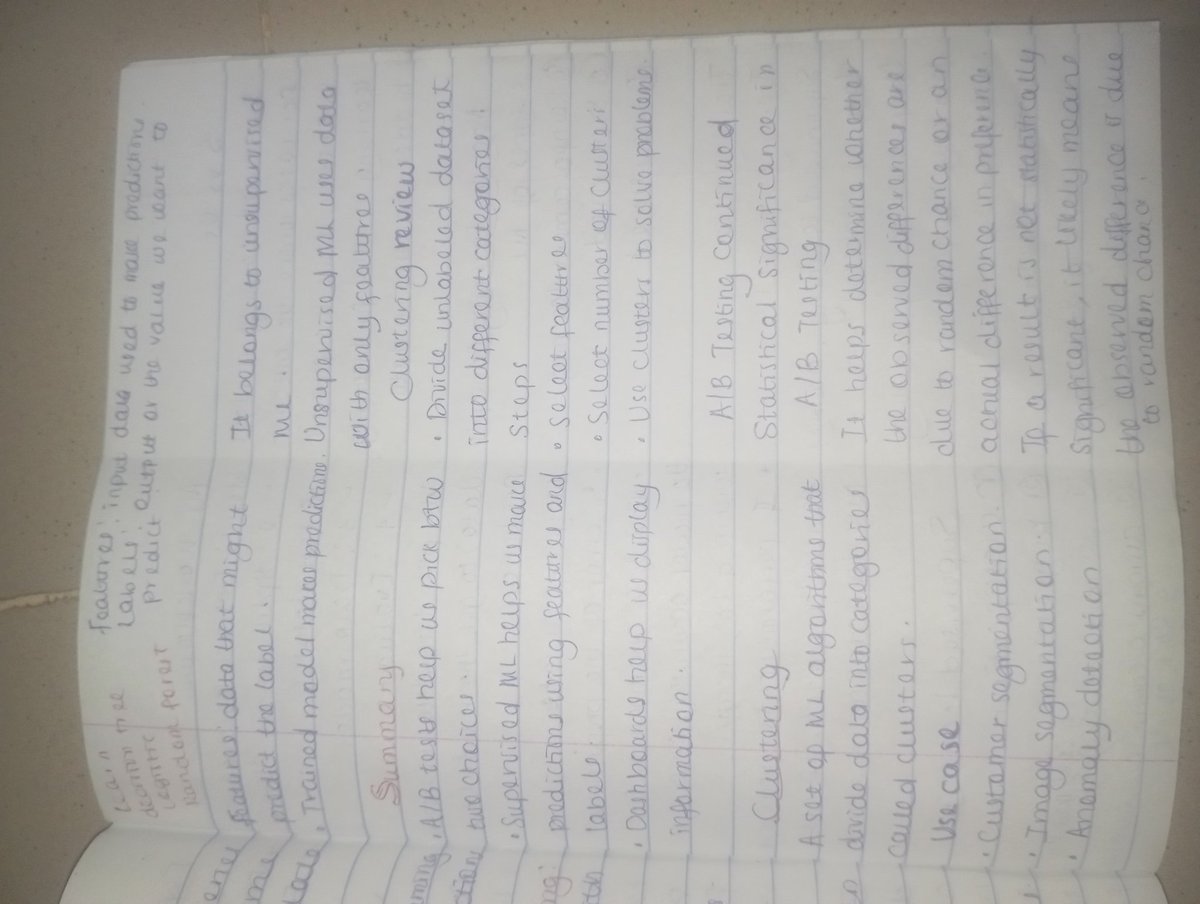 Learn
decision tree
logistic
random forest
Features: input data used to make predictions
Labels: output or the value we want to
predict
features: data that might
predict the label.
• Trained model makes predictions.
Summary
• A/B tests help us pick btw
two choices.
• Supervised ML helps us make
predictions using features and
labels.
• Dashboards help us display
information.
Clustering
A set of ML algorithms that
divide data into categories
called clusters.
Use case
• Customer segmentation.
• Image segmentation.
• Anomaly detection
It belongs to unsupervised
ML.
Unsupervised ML uses data
with only features.
Clustering review
• Divide unlabeled dataset
into different categories!
Steps
• Select features
• Select number of clusters
• Use clusters to solve problems.
A/B Testing continued
Statistical Significance in
A/B Testing
It helps determine whether
the observed differences are
due to random chance or an
actual difference in preference.
If a result is not statistically
significant, it likely means
the observed difference is due
to random chance.